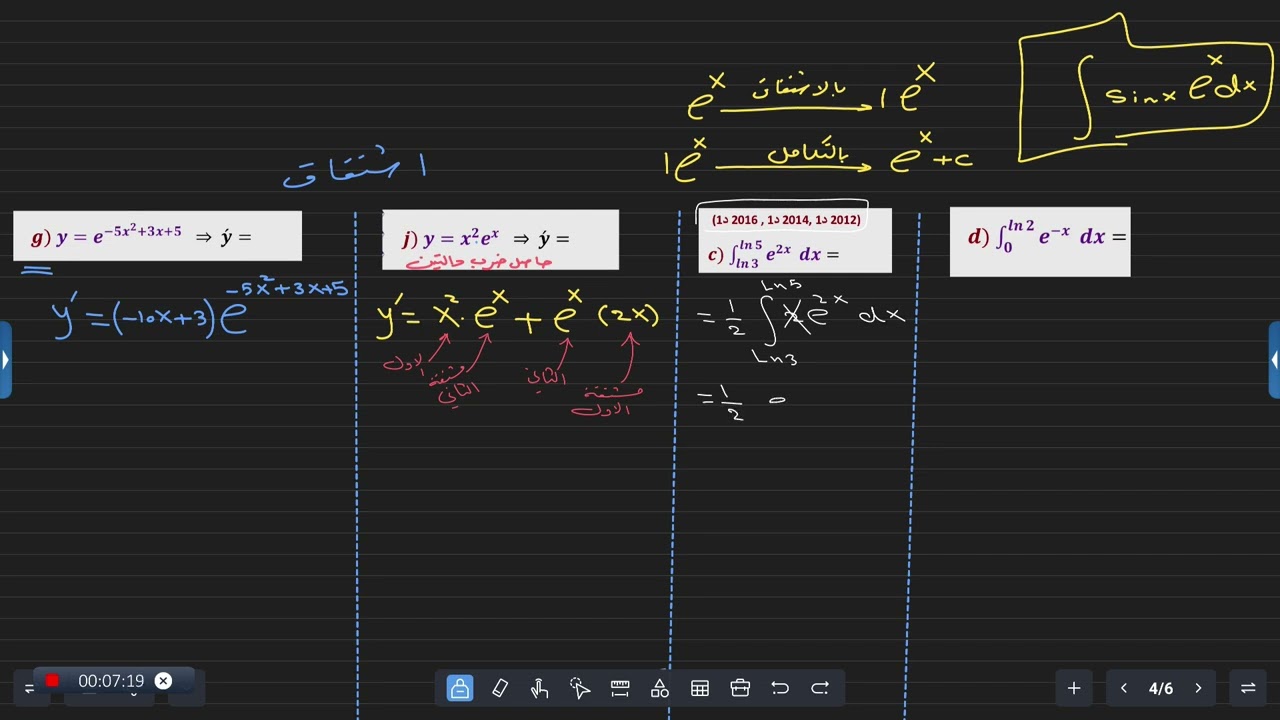 e^x بالاشتقاق 1e^x
1e^x بالتكامل e^x + c
∫ sinx e^x dx
اشتقاق
g) y = e^{-5x²+3x+5} ⇒ ý =
y' = (-10x+3) e^{-5x²+3x+5}
j) y = x²e^x ⇒ ý =
حاصل ضرب دالتين
y' = x² · e^x + e^x (2x)
الاول
مشتقة الثاني
الثاني
مشتقة الاول
(2012 د1, 2014 د1, 2016 د1)
c) ∫_{ln 3}^{ln 5} e^{2x} dx =
= 1/2 ∫_{Ln3}^{Ln5} 2e^{2x} dx
= 1/2
d) ∫_0^{ln 2} e^{-x} dx =
00:07:19
4/6